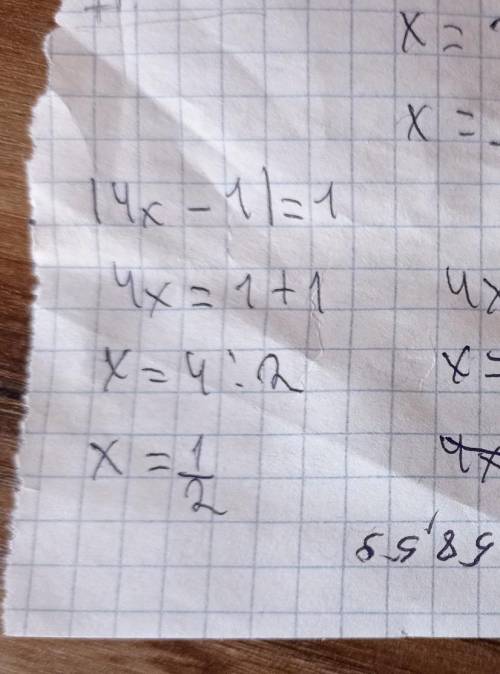 x =
x =
|4x - 1| = 1
4x = 1 + 1
4x
x = 4 : 2
x =
x = 1/2
4x
58,59